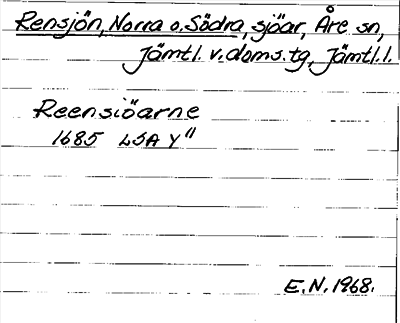 Rensjön, Norra o. Södra, sjöar, Åre sn,
Jämtl. v. doms. tg, Jämtl. l.
Reensiöarne
1685 LSA Y"
E.N. 1968.